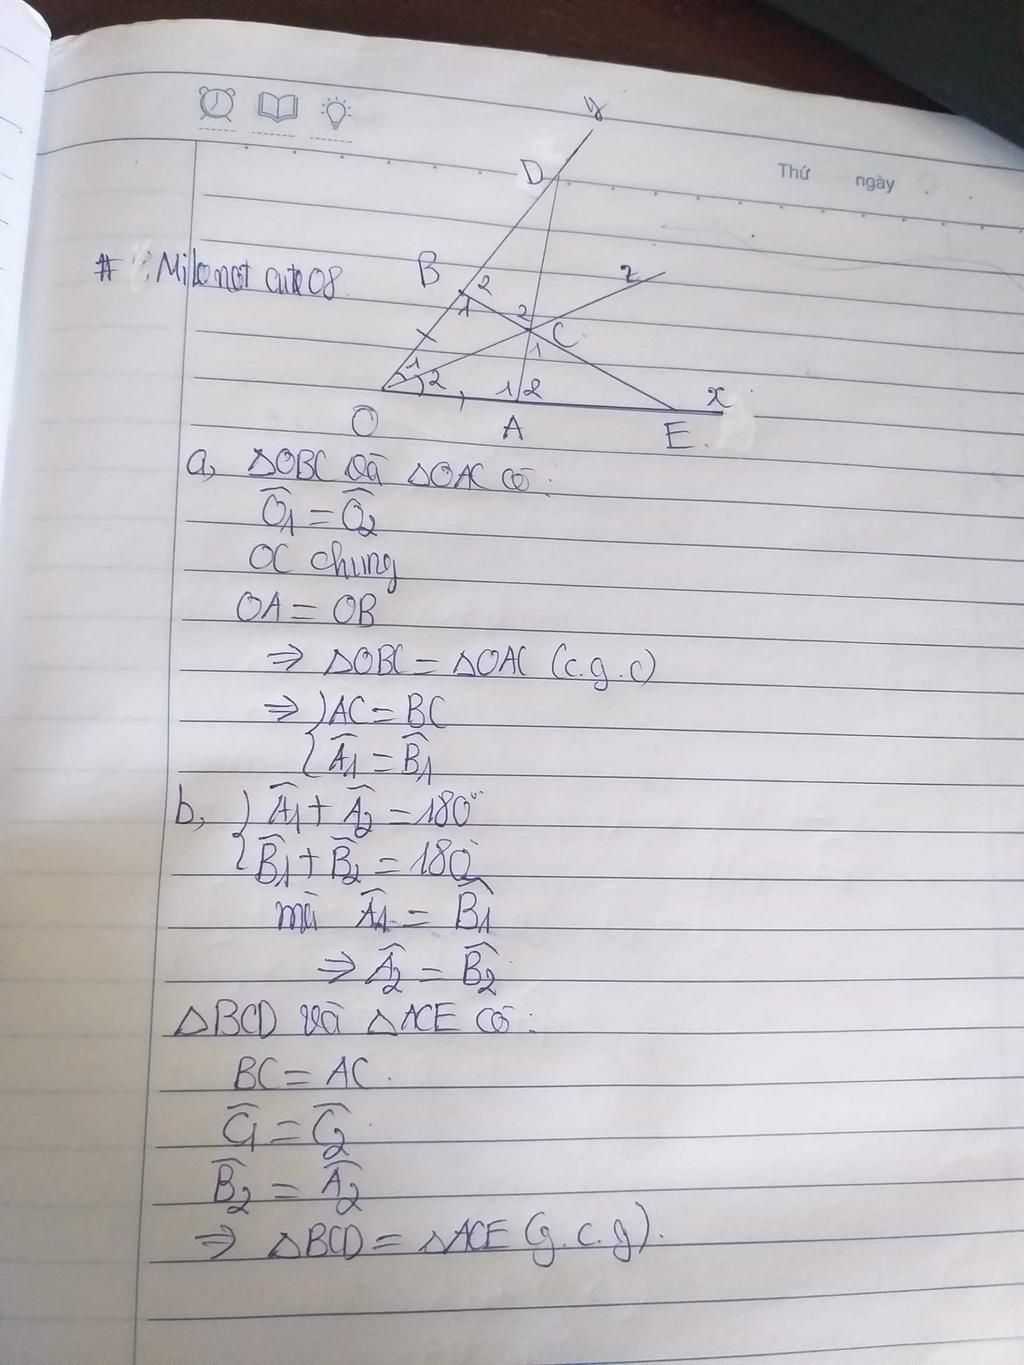 Thứ ngày
y
D
B 2
1
z
2
C
1
1
2
1 2
x
O
A
E
a, △OBC và △OAC có:
Ô1 = Ô2
OC chung
OA = OB
⇒ △OBC = △OAC (c.g.c)
⇒ { AC = BC
{ Â1 = B̂1
b, { Â1 + Â2 = 180°
{ B̂1 + B̂2 = 180°
mà Â1 = B̂1
⇒ Â2 = B̂2
△BCD và △ACE có:
BC = AC.
Ĉ1 = Ĉ2
B̂2 = Â2
⇒ △BCD = △ACE (g.c.g).